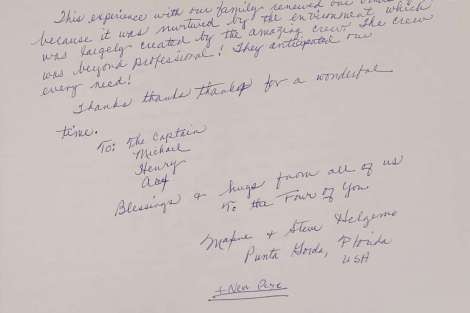 This experience with our family renewed our
because it was nurtured by the environment which
was largely created by the amazing crew. The crew
was beyond professional! They anticipated our
every need!
Thanks thanks thanks for a wonderful
time.
To: The Captain
Michael
Henry
Blessings & hugs from all of us
To the Four of You
& Steve Helgemo
Punta Gorda, Florida
USA